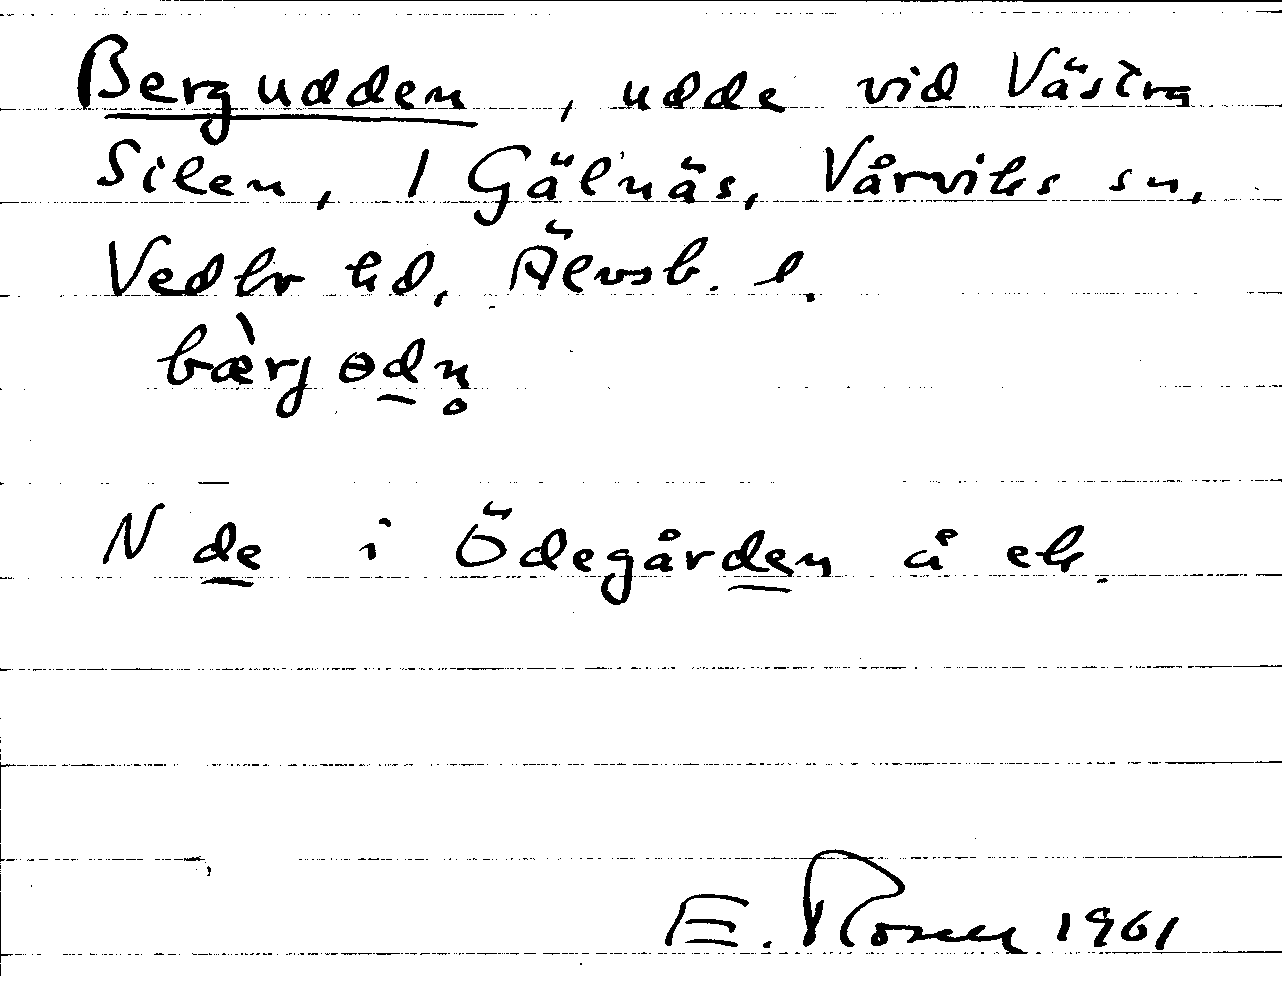 Bergudden, udde vid Västra
Silen, 1 Gälnäs, Vårviks sn,
Vedbo hd, Älvsb. l.
bærj ɵdn̥
N de i Ödegården å ek.
E. Rosen 1961